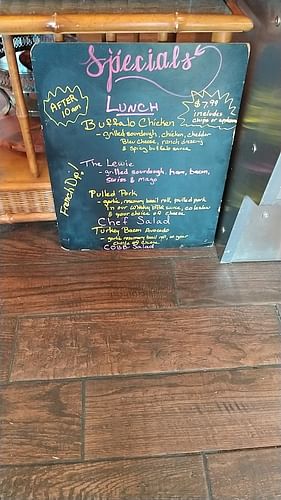 Specials
AFTER
10 am
LUNCH
$7.99
includes
chips or
Buffalo Chicken
- grilled sourdough, chicken, cheddar
Bleu cheese, ranch dressing
& spicy buffalo sauce
French Dip!
The Lewie
- grilled sourdough, ham, bacon,
swiss & mayo
Pulled Pork
- garlic, rosemary basil roll, pulled pork
in our whiskey BBQ sauce, coleslaw
& your choice of cheese
Chef Salad
Turkey Bacon Avocado
- garlic rosemary basil roll, w your
choice of cheese
COBB Salad